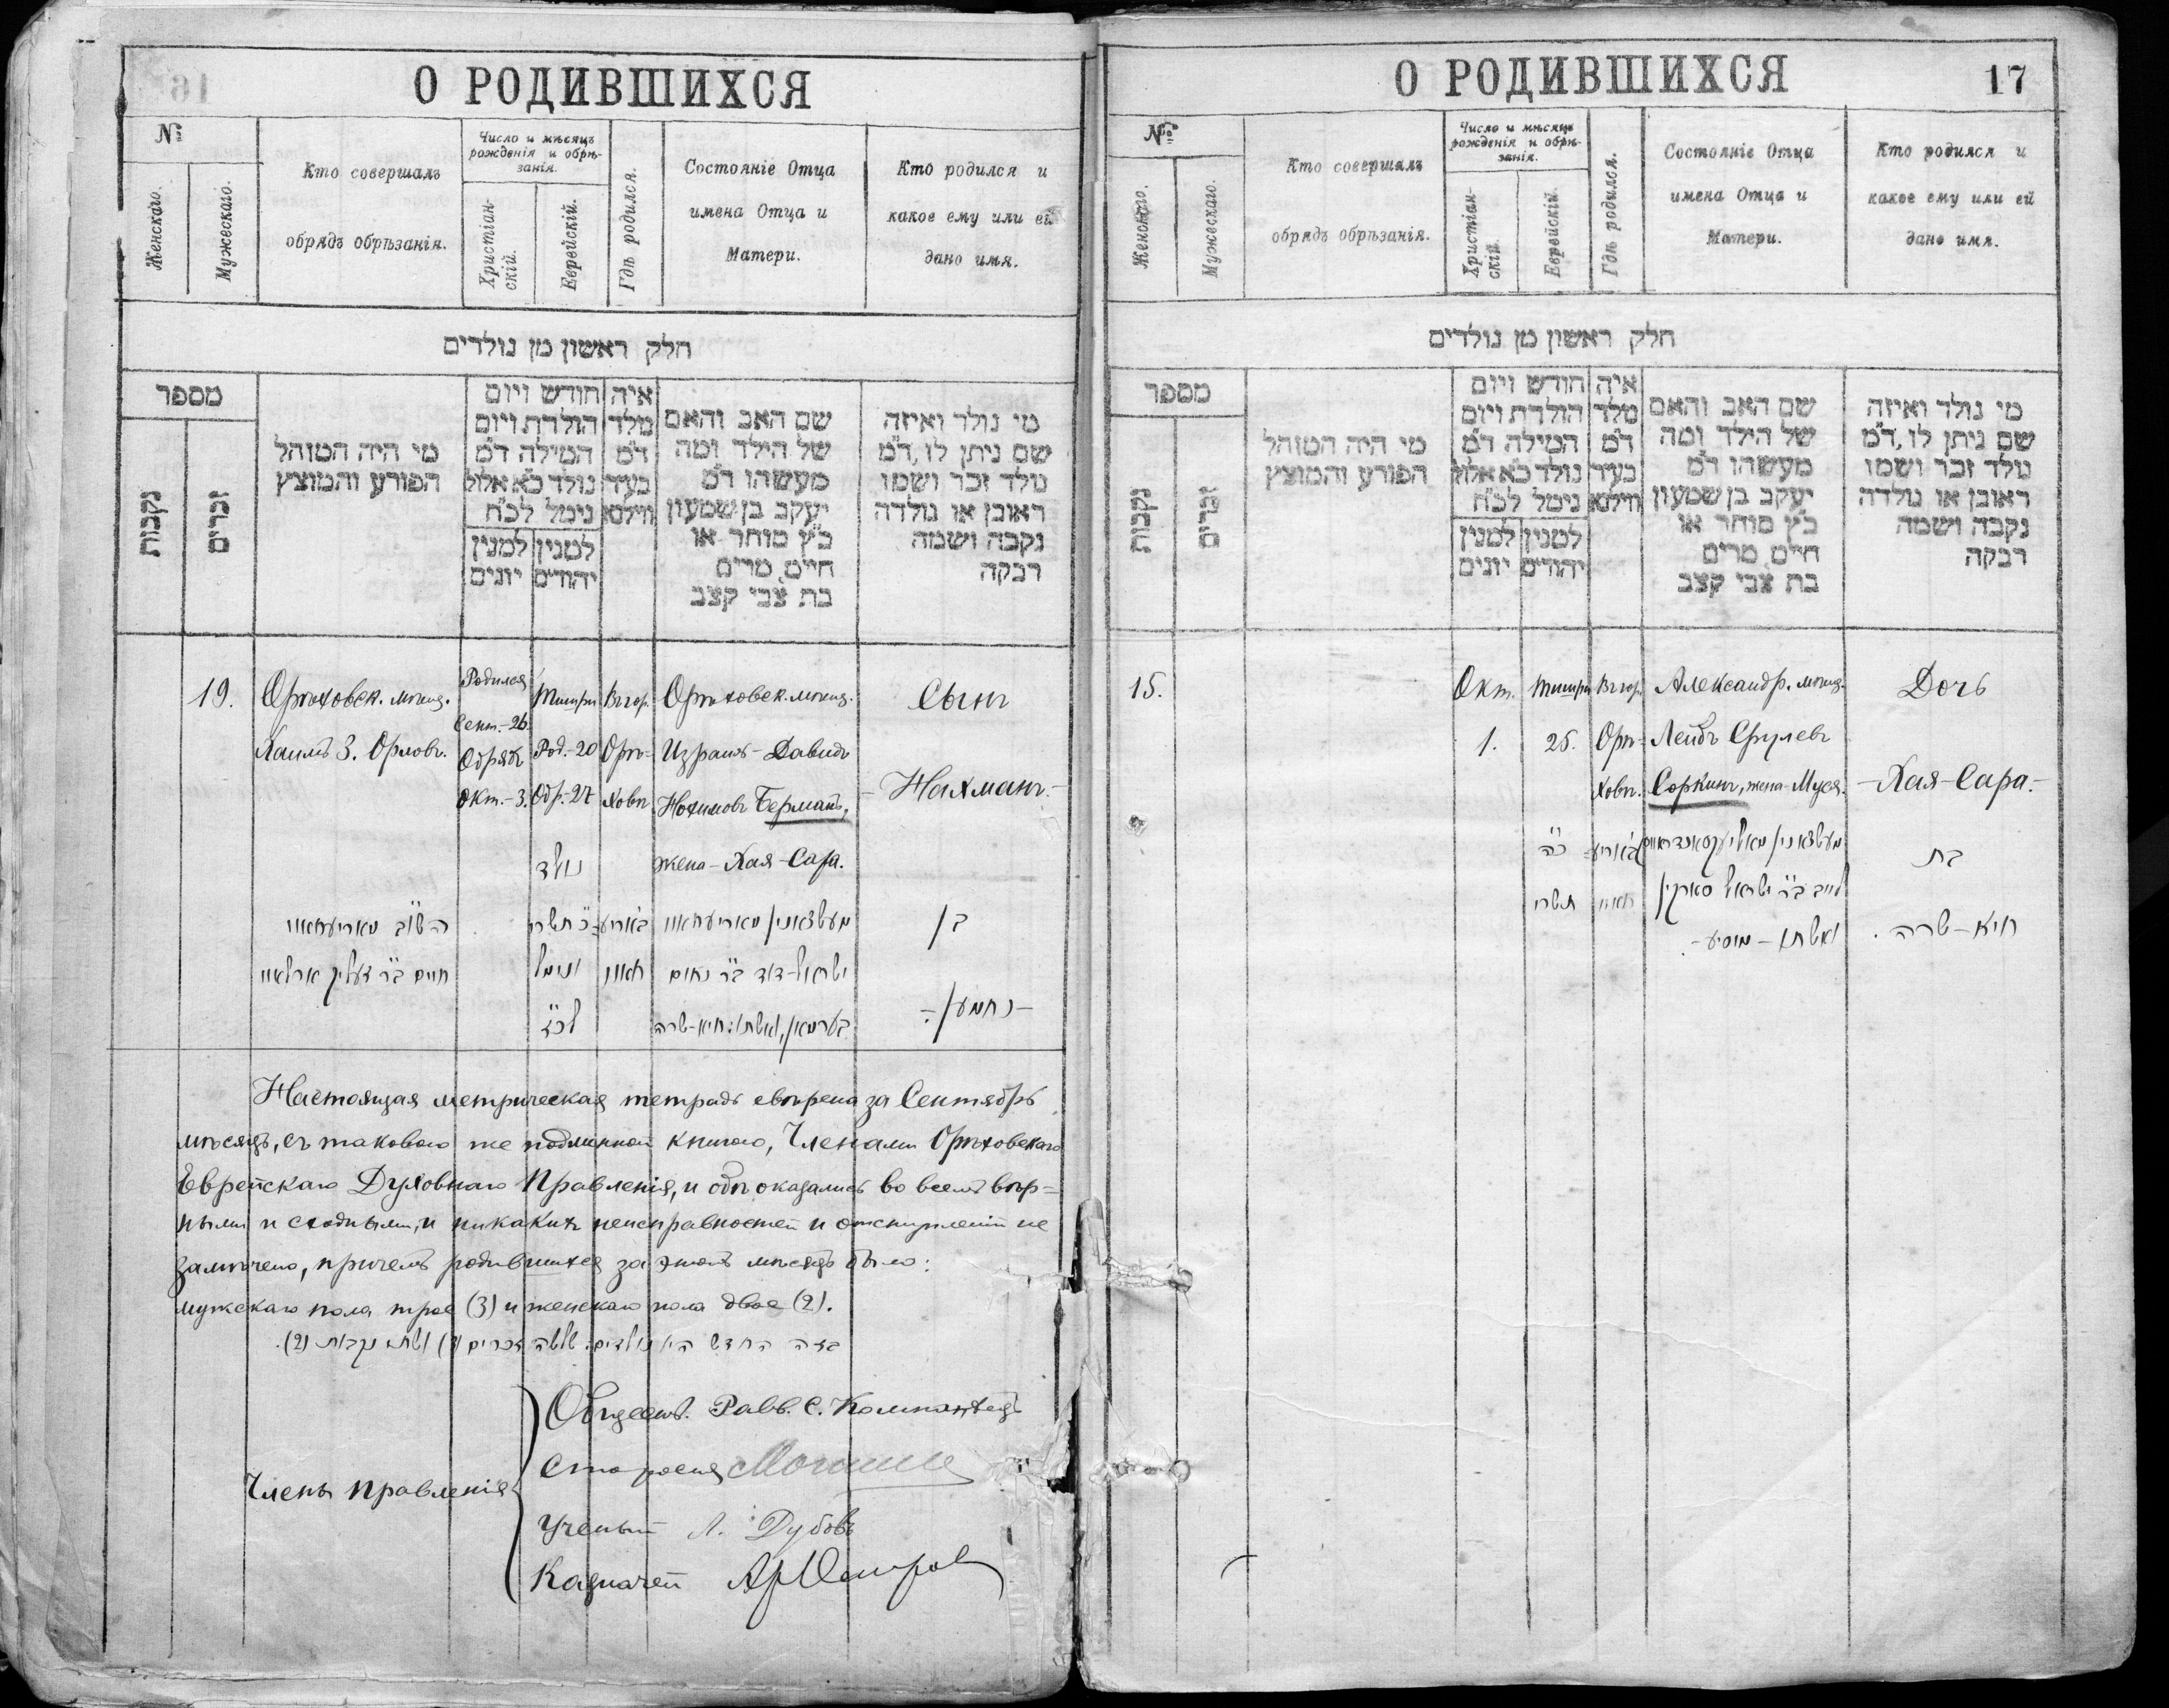 О РОДИВШИХСЯ
№
Женскаго.
Мужескаго.
Кто совершалъ
обрядъ обрѣзанія.
Число и мѣсяцъ
рожденія и обрѣ-
занія.
Христіан-
скій.
Еврейскій.
Гдѣ родился.
Состояніе Отца
имена Отца и
Матери.
Кто родился и
какое ему или ей
дано имя.
חלק ראשון מן נולדים
מספר
נקבות
זכרים
מי היה המוהל
הפורע והמוצץ
חודש ויום
הולדת ויום
המילה ד"מ
נולד כ"א אלול
נימל לכ"ח
למנין
יהודים
למנין
יונים
איה
מלד
ד"מ
בעיר
ווילנא
שם האב והאם
של הילד ומה
מעשהו ד"מ
יעקב בן שמעון
כ"ץ סוחר או
חי"ט, מרים
בת צבי קצב
מי נולד ואיזה
שם ניתן לו, ד"מ
נולד זכר ושמו
ראובן או נולדה
נקבה ושמה
רבקה
19.
Орѣховск. мѣщ.
Хаимъ З. Орловъ.
Родился
Сент.-26.
Обрядъ
Окт.-3.
Тишри
Род.-20
Обр.-27
Въ гор.
Орѣ-
ховѣ
Орѣховск. мѣщ.
Израиль-Давидъ
Нохимовъ Берманъ,
жена-Хая-Сара.
Сынъ
-Нахманъ.-
נולד
כ' תשרי
ונימל
לכ"ז
חיים ב"ר
ישראל-דוד ב"ר נחום
בערמאן, ואשתו: חיא-שרה
בן
-נחמן-
Настоящая метрическая тетрадь свѣрена за Сентябрь
мѣсяцъ, съ таковою же подлинной книгою, Членами Орѣховскаго
Еврейскаго Духовнаго Правленія, и обѣ оказались во всемъ вѣр=
ными и сходными, и никакихъ неисправностей и отступленій не
замѣчено, причемъ родившихся за этотъ мѣсяцъ было:
мужскаго пола трое (3) и женскаго пола двое (2).
בזה החדש היו נולדים: שלשה זכרים (3) ושתי נקבות (2).
Члены Правленія
Обществ. Равв. С.
Староста
Ученый Л. Дубовъ
Казначей
О РОДИВШИХСЯ
17
№
Женскаго.
Мужескаго.
Кто совершалъ
обрядъ обрѣзанія.
Число и мѣсяцъ
рожденія и обрѣ-
занія.
Христіан-
скій.
Еврейскій.
Гдѣ родился.
Состояніе Отца
имена Отца и
Матери.
Кто родился и
какое ему или ей
дано имя.
חלק ראשון מן נולדים
מספר
נקבות
זכרים
מי היה המוהל
הפורע והמוצץ
חודש ויום
הולדת ויום
המילה ד"מ
נולד כ"א אלול
נימל לכ"ח
למנין
יהודים
למנין
יונים
איה
מלד
ד"מ
בעיר
ווילנא
שם האב והאם
של הילד ומה
מעשהו ד"מ
יעקב בן שמעון
כ"ץ סוחר או
חי"ט, מרים
בת צבי קצב
מי נולד ואיזה
שם ניתן לו, ד"מ
נולד זכר ושמו
ראובן או נולדה
נקבה ושמה
רבקה
15.
Окт.
1.
Тишри
25.
Въ гор.
Орѣ-
ховѣ.
Александр. мѣщ.
Лейбъ Срулевъ
Соркинъ, жена-Муся.
Дочь
-Хая-Сара.-
כ"ה
תשרי
לייב ב"ר ישראל סארקין
ואשתו - מוסיע-
בת
חיא-שרה.